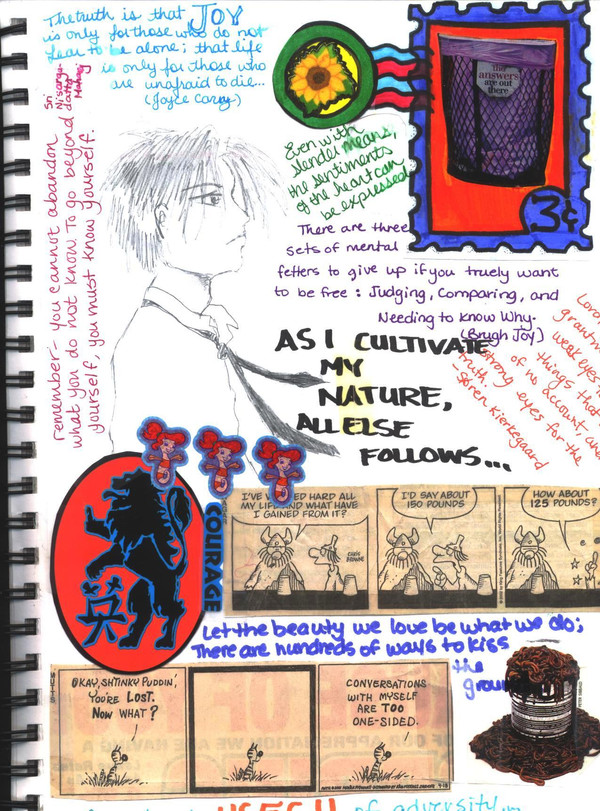 The truth is that JOY
is only for those who do not
fear to be alone; that life
is only for those who
are unafraid to die...
(Joyce Carey)
the
answers
are out
there
3¢
Even with
slender means,
the sentiments
of the heart can
be expressed
There are three
sets of mental
fetters to give up if you truely want
to be free: Judging, Comparing, and
Needing to Know Why.
(Brugh Joy)
remember - you cannot abandon
what you do not know. To go beyond
yourself, you must know yourself.
Sri
Nisarga-
datta
Maharaj
AS I CULTIVATE
MY
NATURE,
ALL ELSE
FOLLOWS...
weak eyes
things that
of no account, and
strong eyes for the
truth.
- Søren Kierkegaard
COURAGE
英
I'VE WORKED HARD ALL
MY LIFE AND WHAT HAVE
I GAINED FROM IT?
CHRIS
BROWNE
I'D SAY ABOUT
150 POUNDS
HOW ABOUT
125 POUNDS?
Let the beauty we love be what we do;
There are hundreds of ways to kiss
the
ground
MUTTS
OKAY, SHTINKY PUDDIN',
YOU'RE LOST.
NOW WHAT?
CONVERSATIONS
WITH MYSELF
ARE TOO
ONE-SIDED.
9-13
of adversity